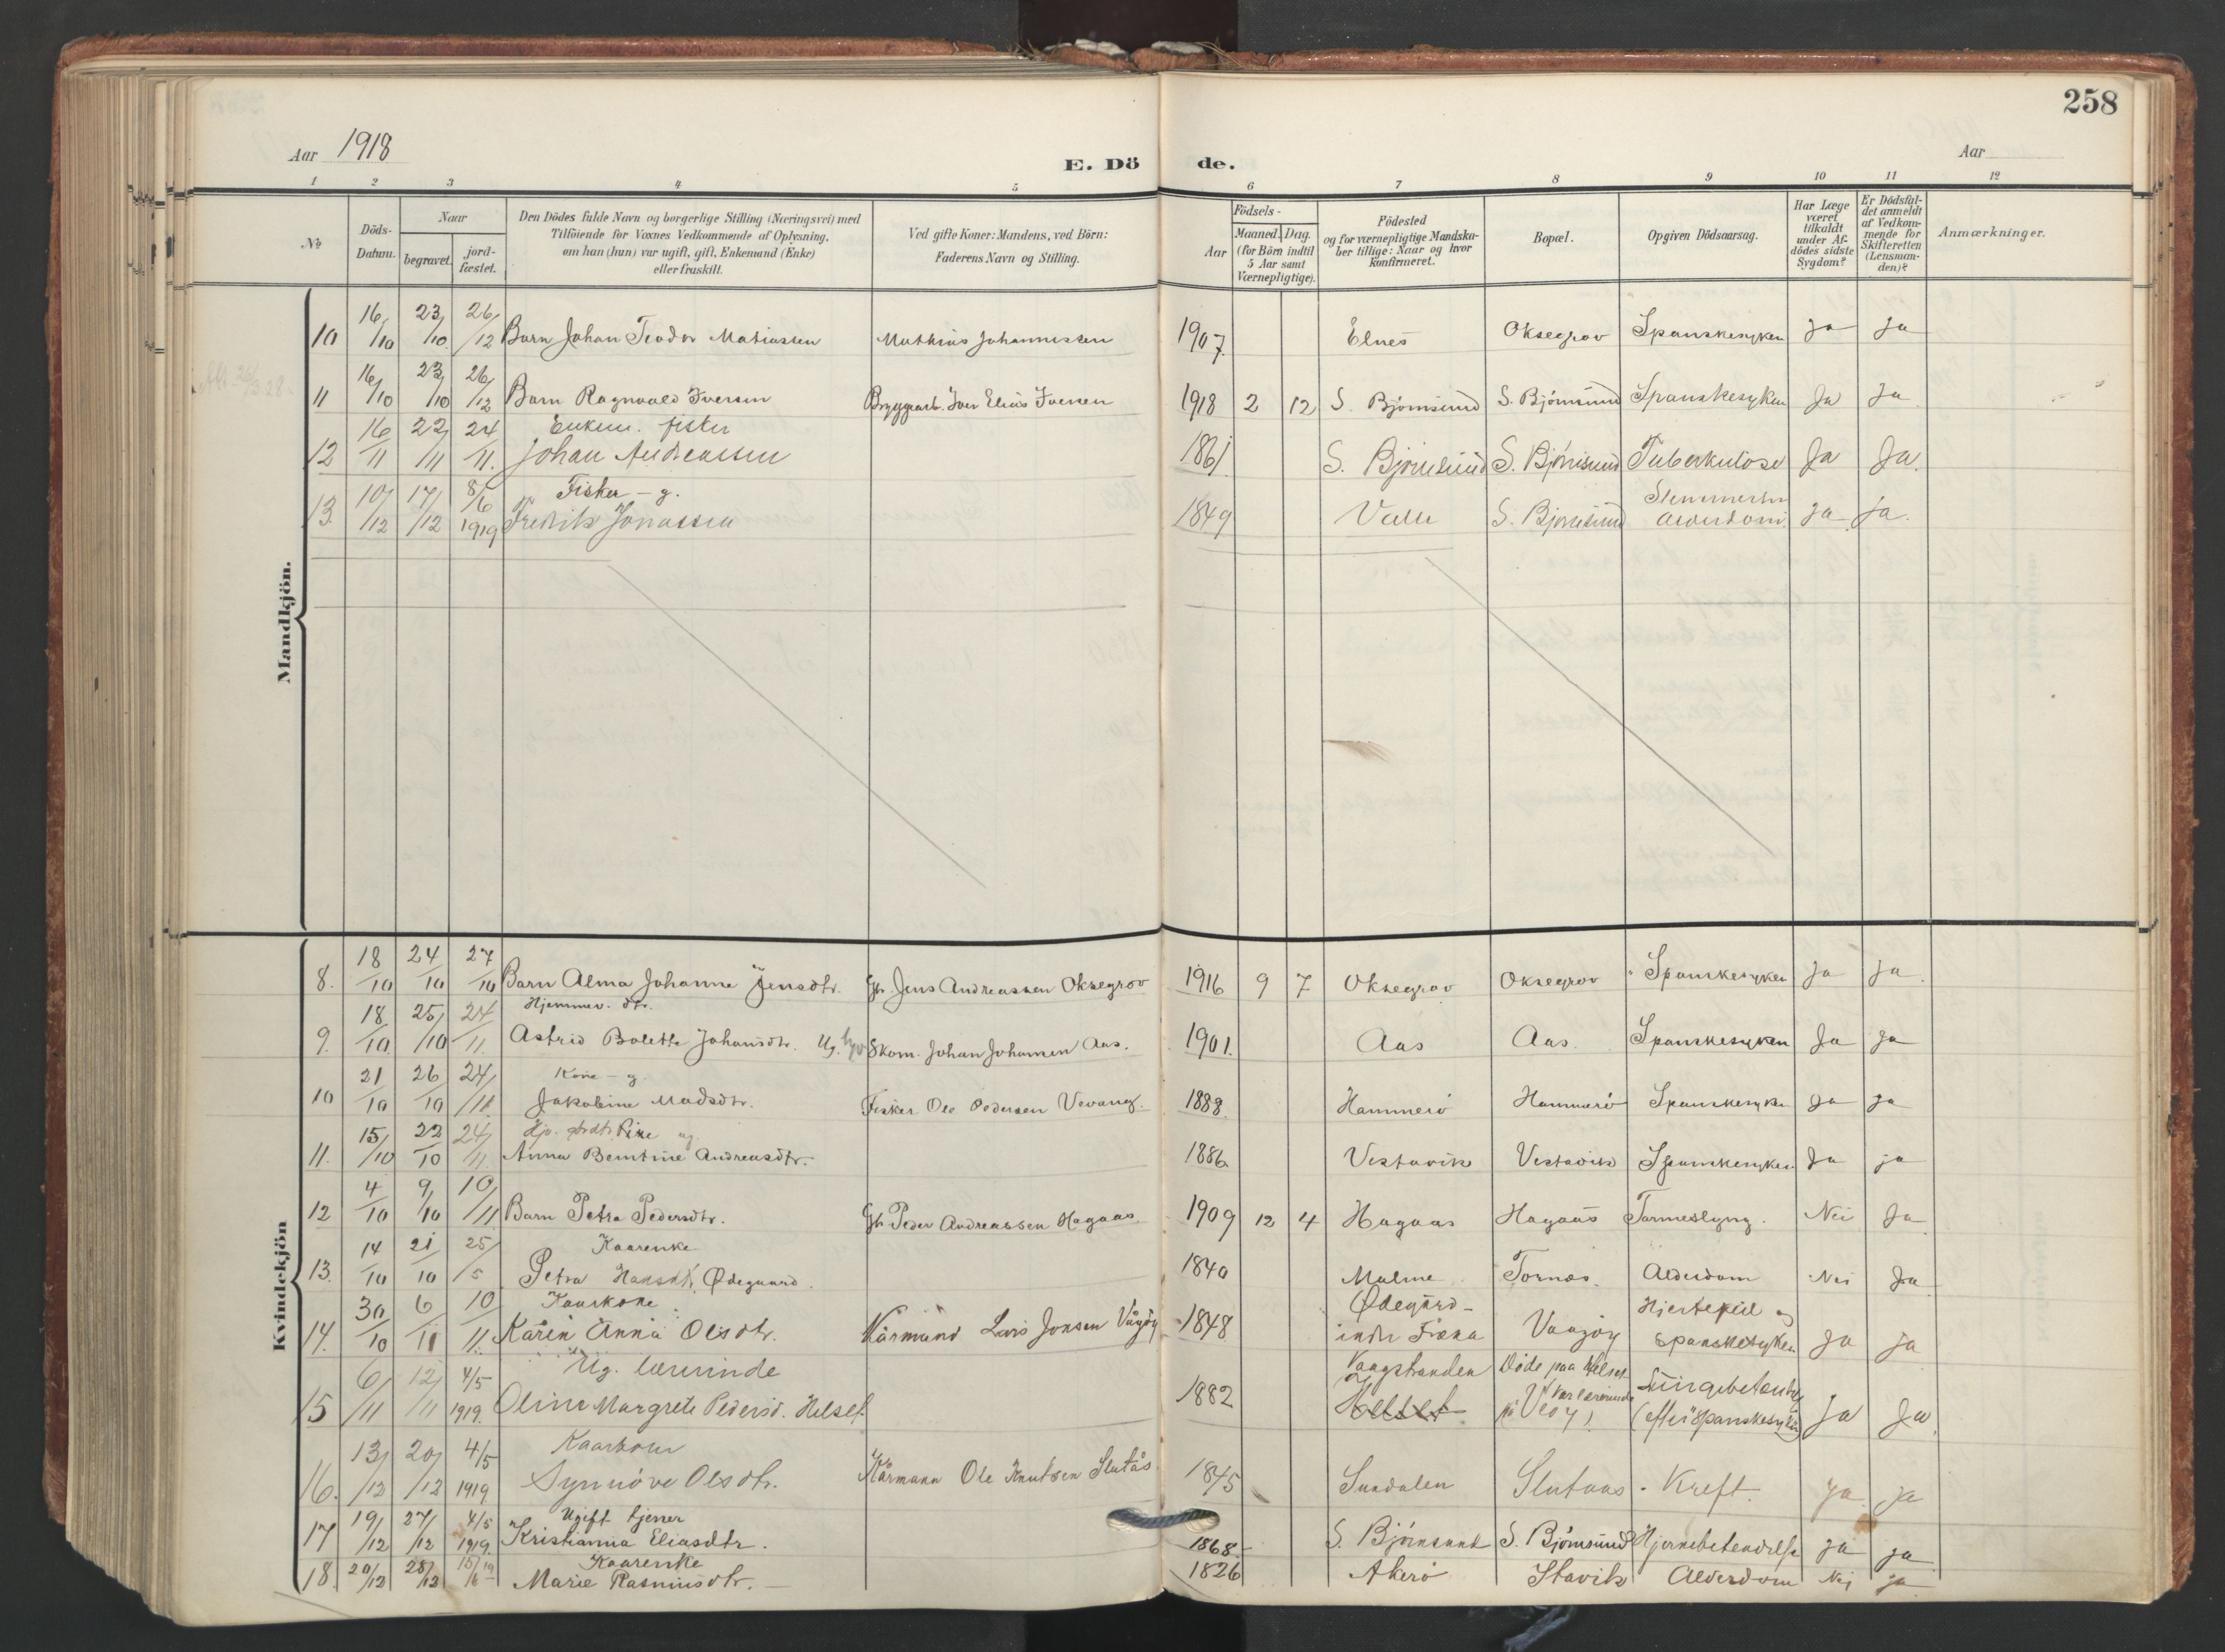 258
Aar 1918
E. Dö de.
Aar
1 2 3 4 5 6 7 8 9 10 11 12
№
Döds-Datum.
Naar
begravet.
jord-fæstet.
Den Dödes fulde Navn og borgerlige Stilling (Næringsvei) med
Tilföiende for Voxnes Vedkommende af Oplysning,
om han (hun) var ugift, gift, Enkemand (Enke)
eller fraskilt.
Ved gifte Koner: Mandens, ved Börn:
Faderens Navn og Stilling.
Födsels-
Aar
Maaned. Dag.
(for Börn indtil
5 Aar samt
Værnepligtige).
Födested
og for værnepligtige Mandska-
ber tillige: Naar og hvor
konfirmeret.
Bopæl.
Opgiven Dödsaarsag.
Har Læge
været
tilkaldt
under Af-
dödes sidste
Sygdom?
Er Dödsfal-
det anmeldt
af Vedkom-
mende for
Skifteretten
(Lensman-
den)?
Anmærkninger.
Mandkjön.
10 16/10 23/10 26/12 Barn Johan Teodor Matiassen Mathias Johannessen 1907. Elnes Oksegrov Spanskesyken ja ja
11 16/10 23/10 26/12 Barn Ragnvald Iversen Bryggearb. Iver Elias Iversen 1918 2 12 S. Björnsund S. Björnsund Spanskesyken Ja Ja
Enkem. fisker
12 16/11 22/11 24/11. Johan Andreassen 1861 S. Björnsund S. Björnsund Tuberkulose Ja Ja.
Fisker – g.
13. 10/12 17/12 8/6 1919 Fredrik Jonassen 1849 Valle S. Björnsund alderdom ja ja.
Kvindekjön
8. 18/10 24/10 27/10 Barn Alma Johanne Jensdtr. Gbr. Jens Andreassen Oksegrov 1916 9 7 Oksegrov Oksegrov Spanskesyken ja ja.
Hjemmev. dtr.
9. 18/10 25/10 24/11. Astrid Bolette Johansdtr. Ug. Skom. Johan Johansen Aas. 1901. Aas Aas. Spanskesyken Ja ja
Kone – g.
10 21/10 26/10 24/11. Jakobine Madsdtr. Fisker Ole Pedersen Vevang. 1888. Hammerö Hammerö Spanskesyken Ja ja
11. 15/10 22/10 24/11. Anna Berntine Andreasdtr. 1886 Vestavik Vestavik Spanskesyken Ja ja
12 4/10 9/10 10/11 Barn Petra Pedersdtr. Gbr. Peder Andreassen Hagaas 1909 12 4 Hagaas Hagaas Tarmeslyng. Nei Ja
Kaarenke
13. 14/10 21/10 25/5 Petra Hansdt. Ödegaard. 1840 Malme Tornes. Alderdom Nei Ja
Kaarkone Ödegård- Hjertefeil og
14. 30/10 6/11 10/11. Karen Anna Olsdtr. Kårmand Lars Jonsen Vågöy 1848 indre Fræna Vaagöy spanskesyken ja ja
Ug. lærerinde Vaagstranden Döde paa Helset
15 6/11 12/11 4/5 1919. Oline Margrete Pedersd. Helset. 1882 Helset Veöy). (efter spanskesyken) ja Ja.
Kaarkone
16. 13/12 20/12 4/5 1919 Synnöve Olsdtr. Kårmann Ole Knutsen Slutås 1845 Sundalen Slutaas Kreft. ja ja
Ugift tjener
17 19/12 27/12 4/5 1919. Kristianna Eliasdtr. 1868 S. Björnsund S. Björnsund Hjernebetendelse ja ja
Kaarenke
18. 20/12 28/12 15/6 19 Marie Rasmusdtr. – 1826 Akerö Stavik Alderdom Nei ja